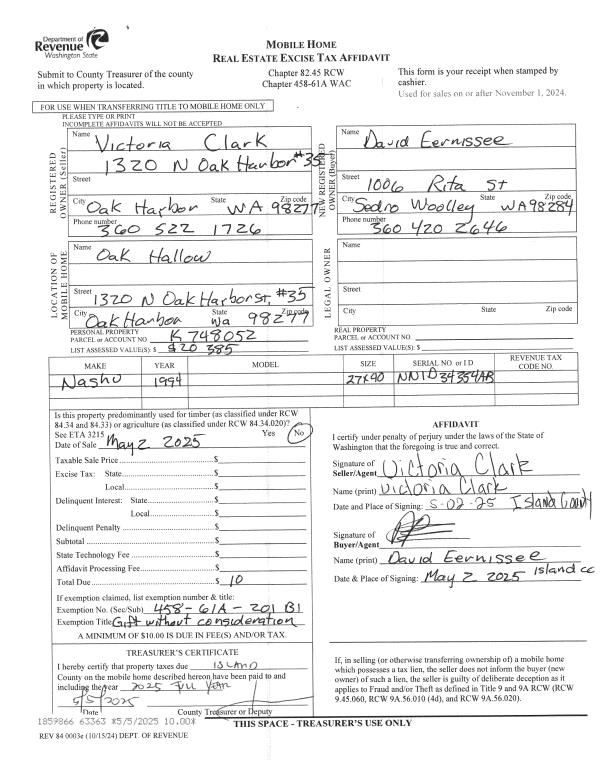 Department of
Revenue
Washington State
MOBILE HOME
REAL ESTATE EXCISE TAX AFFIDAVIT
Submit to County Treasurer of the county
in which property is located.
Chapter 82.45 RCW
Chapter 458-61A WAC
This form is your receipt when stamped by
cashier.
Used for sales on or after November 1, 2024.
FOR USE WHEN TRANSFERRING TITLE TO MOBILE HOME ONLY
PLEASE TYPE OR PRINT
INCOMPLETE AFFIDAVITS WILL NOT BE ACCEPTED
REGISTERED
OWNER (Seller)
Name Victoria Clark
1320 N Oak Harbor #35
Street
City Oak Harbor State WA Zip code 98277
Phone number 360 522 1726
NEW REGISTERED
OWNER (Buyer)
Name David Eernissee
Street 1006 Rita St
City Sedro Woolley State WA Zip code 98284
Phone number 360 420 2646
LOCATION OF
MOBILE HOME
Name Oak Hallow
Street 1320 N Oak Harbor St, #35
City Oak Harbor State Wa Zip code 98277
PERSONAL PROPERTY
PARCEL or ACCOUNT NO. K 748052
LIST ASSESSED VALUE(S): $ $20 385
LEGAL OWNER
Name
Street
City State Zip code
REAL PROPERTY
PARCEL or ACCOUNT NO.
LIST ASSESSED VALUE(S): $
MAKE YEAR MODEL SIZE SERIAL NO. or I.D. REVENUE TAX CODE NO.
Nashu 1994 27x40 NNID34354AB
Is this property predominantly used for timber (as classified under RCW
84.34 and 84.33) or agriculture (as classified under RCW 84.34.020)?
See ETA 3215 Yes No
Date of Sale May 2 2025
Taxable Sale Price $
Excise Tax: State $
Local $
Delinquent Interest: State $
Local $
Delinquent Penalty $
Subtotal $
State Technology Fee $
Affidavit Processing Fee $
Total Due $ 10
If exemption claimed, list exemption number & title:
Exemption No. (Sec/Sub) 458-61A-201 B1
Exemption Title Gift without consideration
A MINIMUM OF $10.00 IS DUE IN FEE(S) AND/OR TAX.
AFFIDAVIT
I certify under penalty of perjury under the laws of the State of
Washington that the foregoing is true and correct.
Signature of
Seller/Agent Victoria Clark
Name (print) Victoria Clark
Date and Place of Signing: 5-02-25 Island County
Signature of
Buyer/Agent
Name (print) David Eernissee
Date & Place of Signing: May 2 2025 Island co
TREASURER'S CERTIFICATE
I hereby certify that property taxes due ISLAND
County on the mobile home described hereon have been paid to and
including the year 2025 FULL YEAR
5/5/2025
Date County Treasurer or Deputy
If, in selling (or otherwise transferring ownership of) a mobile home
which possesses a tax lien, the seller does not inform the buyer (new
owner) of such a lien, the seller is guilty of deliberate deception as it
applies to Fraud and/or Theft as defined in Title 9 and 9A RCW (RCW
9.45.060, RCW 9A.56.010 (4d), and RCW 9A.56.020).
1859866 63363 *5/5/2025 10.00*
THIS SPACE - TREASURER'S USE ONLY
REV 84 0003e (10/15/24) DEPT. OF REVENUE